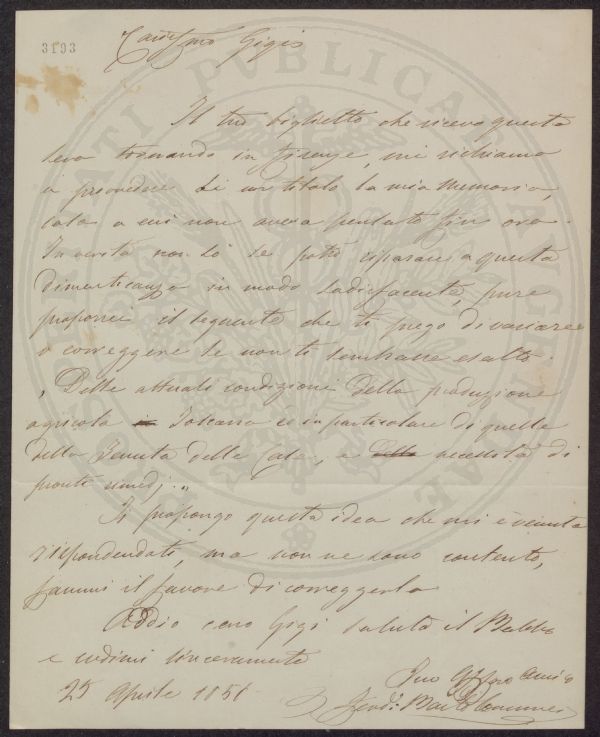 3193
Cariſsmo Gigi
Il tuo biglietto che ricevo questa
sera tornando in Firenze, mi richiama
a provvedere di un titolo la mia Memoria,
cosa a cui non aveva pensato fin ora.
In verità non so se potrò riparare a questa
dimenticanza in modo sodisfacente, pure
proporrei il seguente che ti prego di variare
o correggere se non ti sembrasse esatto.
„Delle attuali condizione della produzione
agricola in Toscana e in particolare di quella
della Tenuta delle Case, e della necessità di
pronti rimedj.„
Ti propongo questa idea che mi è venuta
rispondendoti, ma non ne sono contento,
fammi il favore di correggerla
Addio caro Gigi saluta il Babbo
e credimi sinceramente
Tuo Affmo Amico
25 Aprile 1856
Ferdo Bartolommei
PVBLICAE AVGENDAE